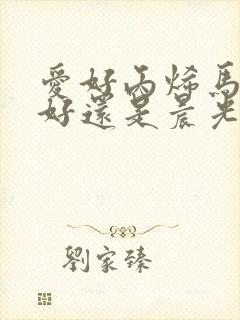 愛好丙烯馬
好還是晨光
劉家臻